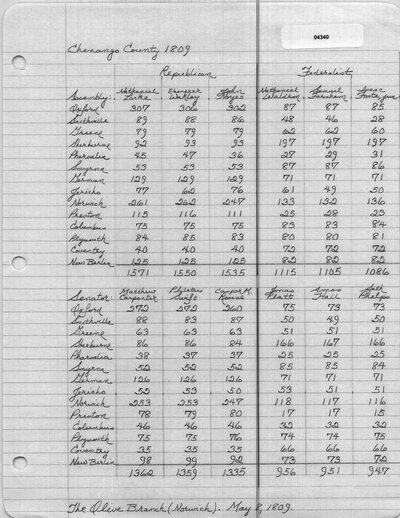 04340
Chenango County 1809
Republican Federalist
Assembly: Nathaniel Locke Ebenezer Wakley John Noyes Nathaniel Waldron Samuel Farnham Isaac Foote, jun.
Oxford 307 306 302 87 87 85
Smithville 89 88 86 48 46 28
Greene 79 79 79 62 62 60
Sherburne 92 93 93 197 197 197
Pharsalia 45 47 36 27 29 31
Smyrna 53 53 53 87 87 86
German 129 129 129 71 71 71
Jericho 77 62 76 61 49 50
Norwich 261 262 247 133 132 136
Preston 115 116 111 25 28 23
Columbus 75 75 75 83 83 84
Plymouth 84 85 83 80 80 81
Coventry 40 40 40 72 72 72
New Berlin 125 125 125 82 82 82
1571 1550 1535 1115 1105 1086
Senator: Matthew Carpenter Philetus Swift Casper M. Rouse Jonas Platt Amos Hall Seth Phelps
Oxford 272 272 260 75 73 73
Smithville 88 83 87 50 49 50
Greene 63 63 63 51 51 51
Sherburne 86 86 84 166 167 166
Pharsalia 38 37 37 25 25 25
Smyrna 52 52 52 85 85 84
German 126 126 126 71 71 71
Jericho 52 53 50 53 51 51
Norwich 253 253 247 118 117 116
Preston 78 79 80 17 17 15
Columbus 46 46 46 32 32 32
Plymouth 75 75 76 74 74 75
Coventry 35 35 35 66 66 66
New Berlin 98 99 92 73 73 72
1362 1359 1335 956 951 947
The Olive Branch (Norwich). May 8, 1809.